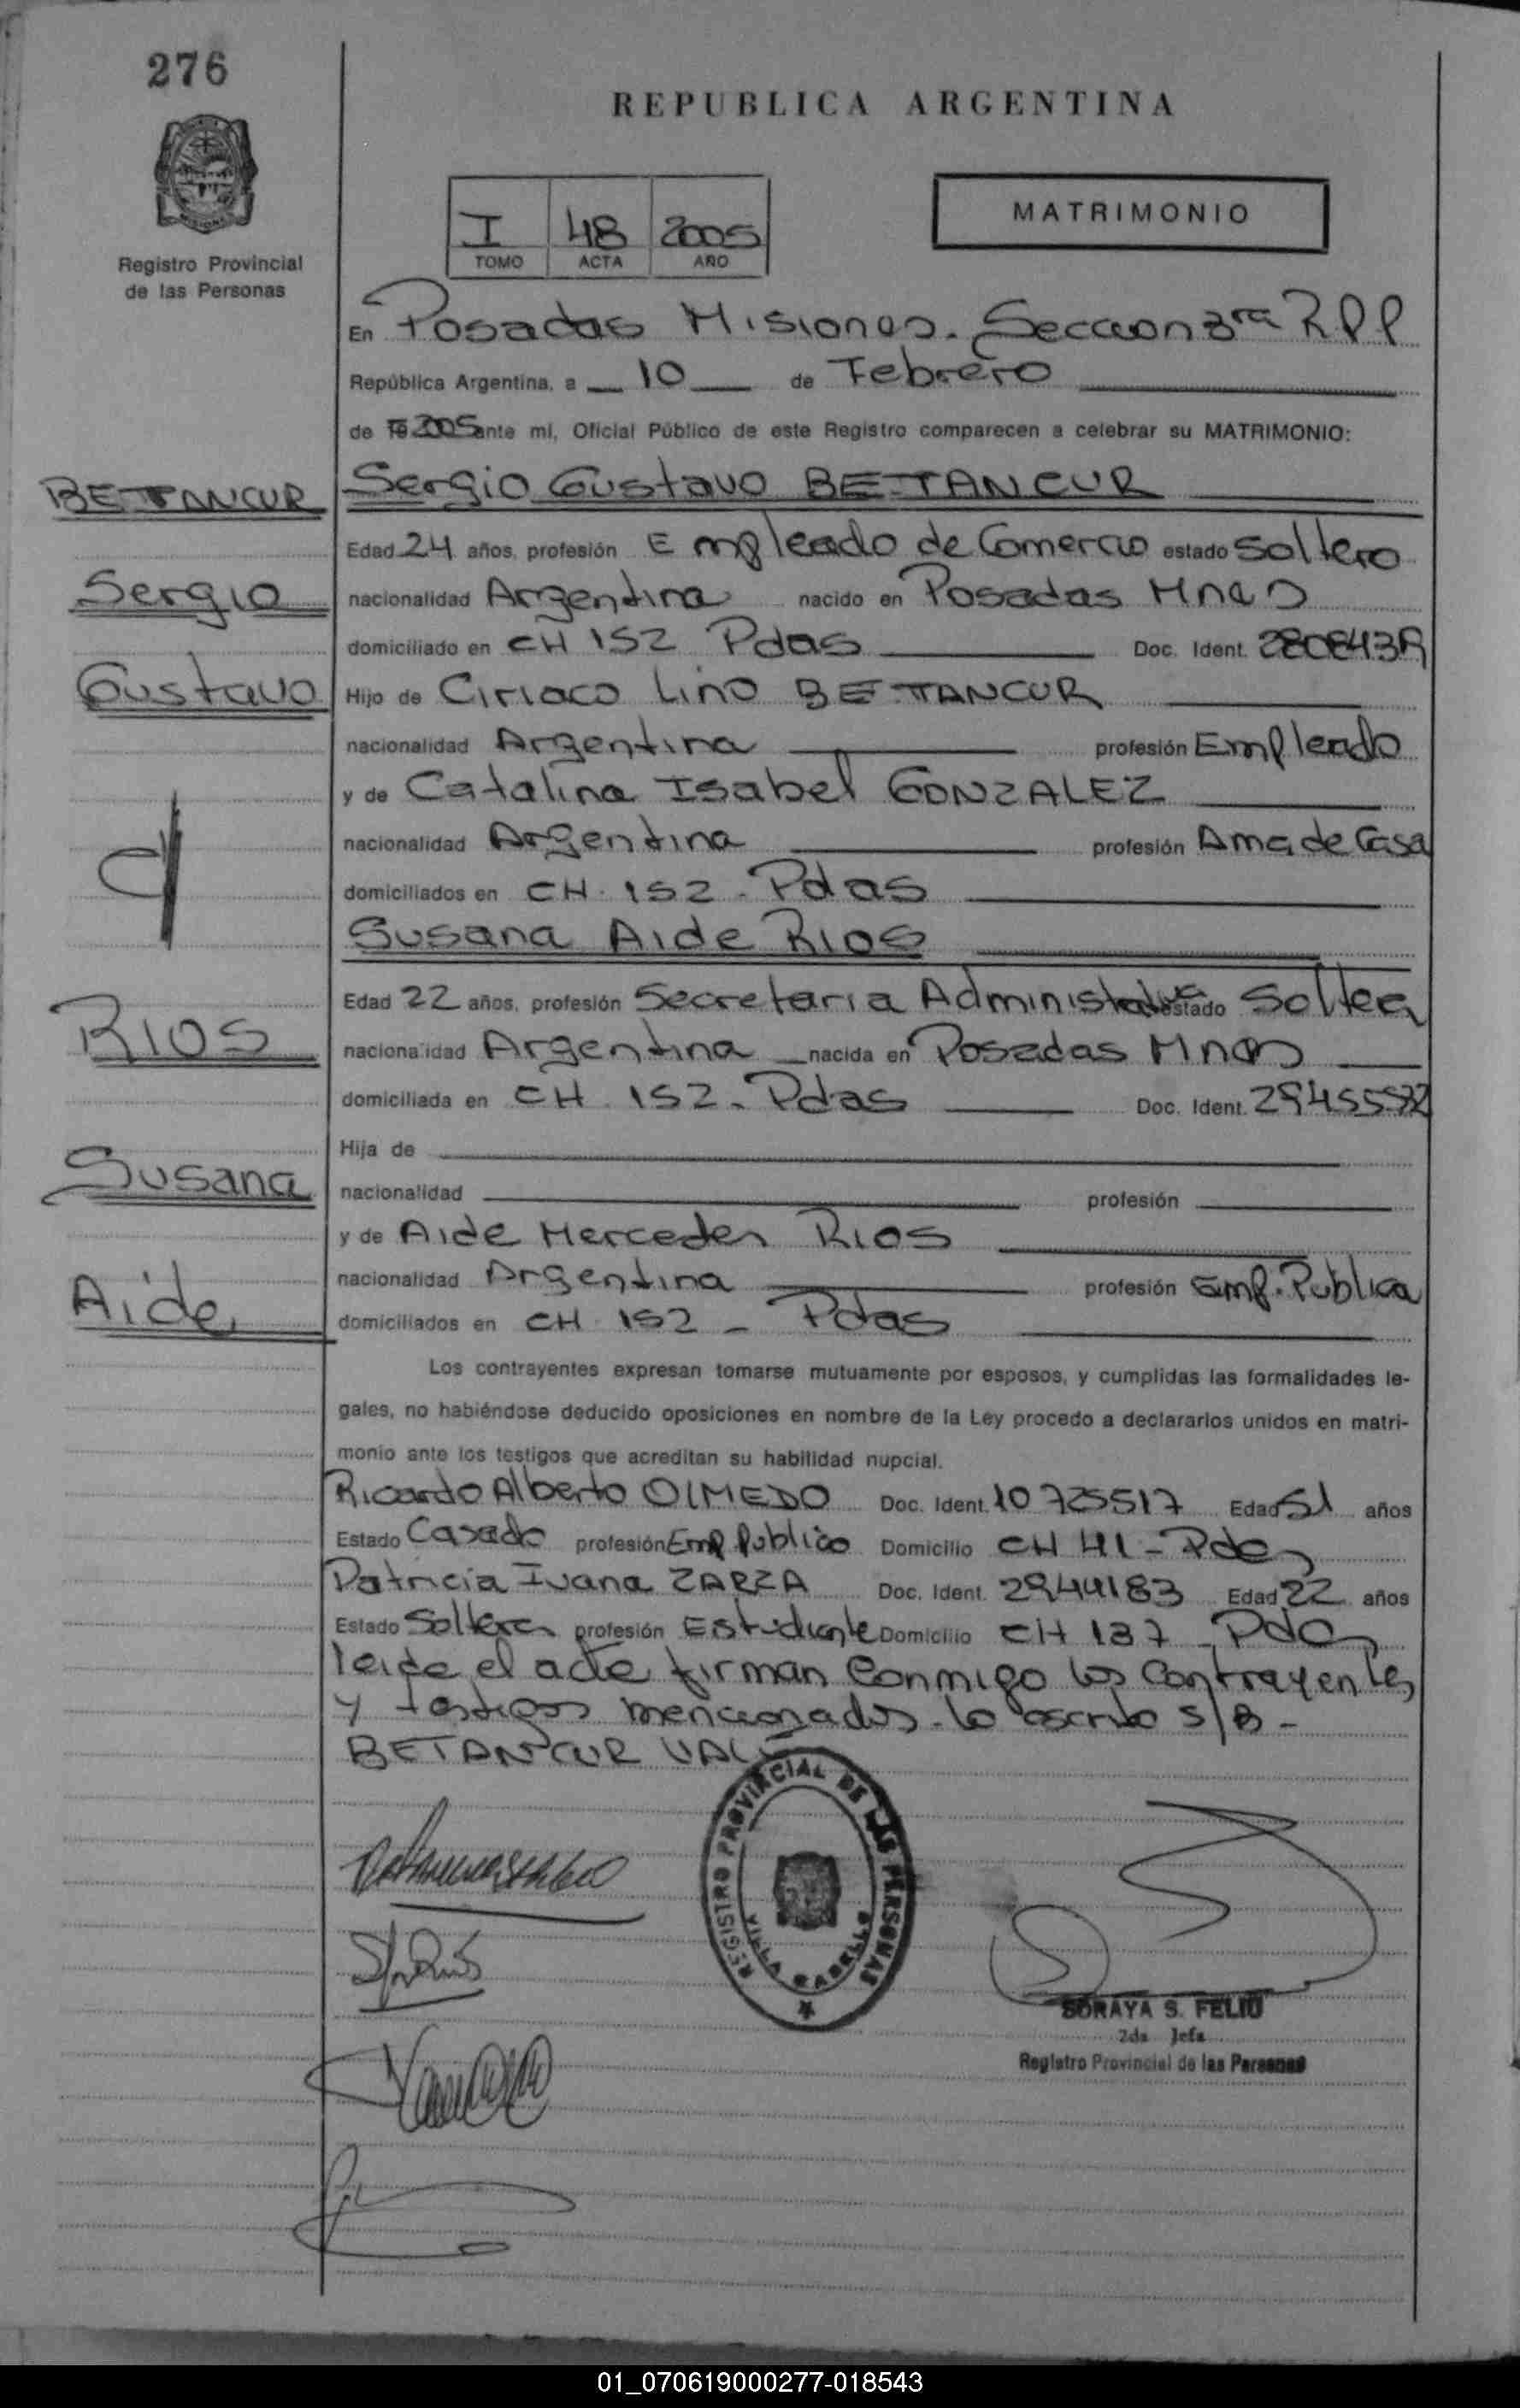 276
REPUBLICA ARGENTINA
MATRIMONIO
I 48 2005
TOMO ACTA AÑO
Registro Provincial
de las Personas
En Posadas Misiones. Seccion 3ra RPP
República Argentina, a 10 de Febrero
de 2005 ante mí, Oficial Público de este Registro comparecen a celebrar su MATRIMONIO:
BETANCUR
Sergio Gustavo BETANCUR
Edad 24 años, profesión Empleado de Comercio estado Soltero
Sergio
nacionalidad Argentina nacido en Posadas Mnes
domiciliado en CH 152 Pdas Doc. Ident.
Gustavo
Hijo de Ciriaco Lino BETANCUR
nacionalidad Argentina profesión Empleado
y de Catalina Isabel GONZALEZ
nacionalidad Argentina profesión Ama de Casa
domiciliados en CH. 152 - Pdas
Susana Aide RIOS
Edad 22 años, profesión Secretaria Administrativa estado Soltera
RIOS
nacionalidad Argentina nacida en Posadas Mnes
domiciliada en CH 152 - Pdas Doc. Ident.
Hija de
Susana
nacionalidad profesión
y de Aide Mercedes RIOS
nacionalidad Argentina profesión Emp. Publica
Aide
domiciliados en CH 152 - Pdas
Los contrayentes expresan tomarse mutuamente por esposos, y cumplidas las formalidades le-
gales, no habiéndose deducido oposiciones en nombre de la Ley procedo a declararlos unidos en matri-
monio ante los testigos que acreditan su habilidad nupcial.
Ricardo Alberto OLMEDO Doc. Ident. 10725517 Edad 51 años
Estado Casado profesión Emp Publico Domicilio CH 41 - Pdas
Patricia Ivana ZARZA Doc. Ident. 29441183 Edad 22 años
Estado Soltera profesión Estudiante Domicilio CH 137 - Pdas
leida el acta firman conmigo los contrayentes
y testigos mencionados. lo escrito s/B -
BETANCUR VALE
REGISTRO PROVINCIAL DE LAS PERSONAS
VILLA CABELLO
SORAYA S. FELIU
2da Jefa
Registro Provincial de las Personas
01_070619000277-018543